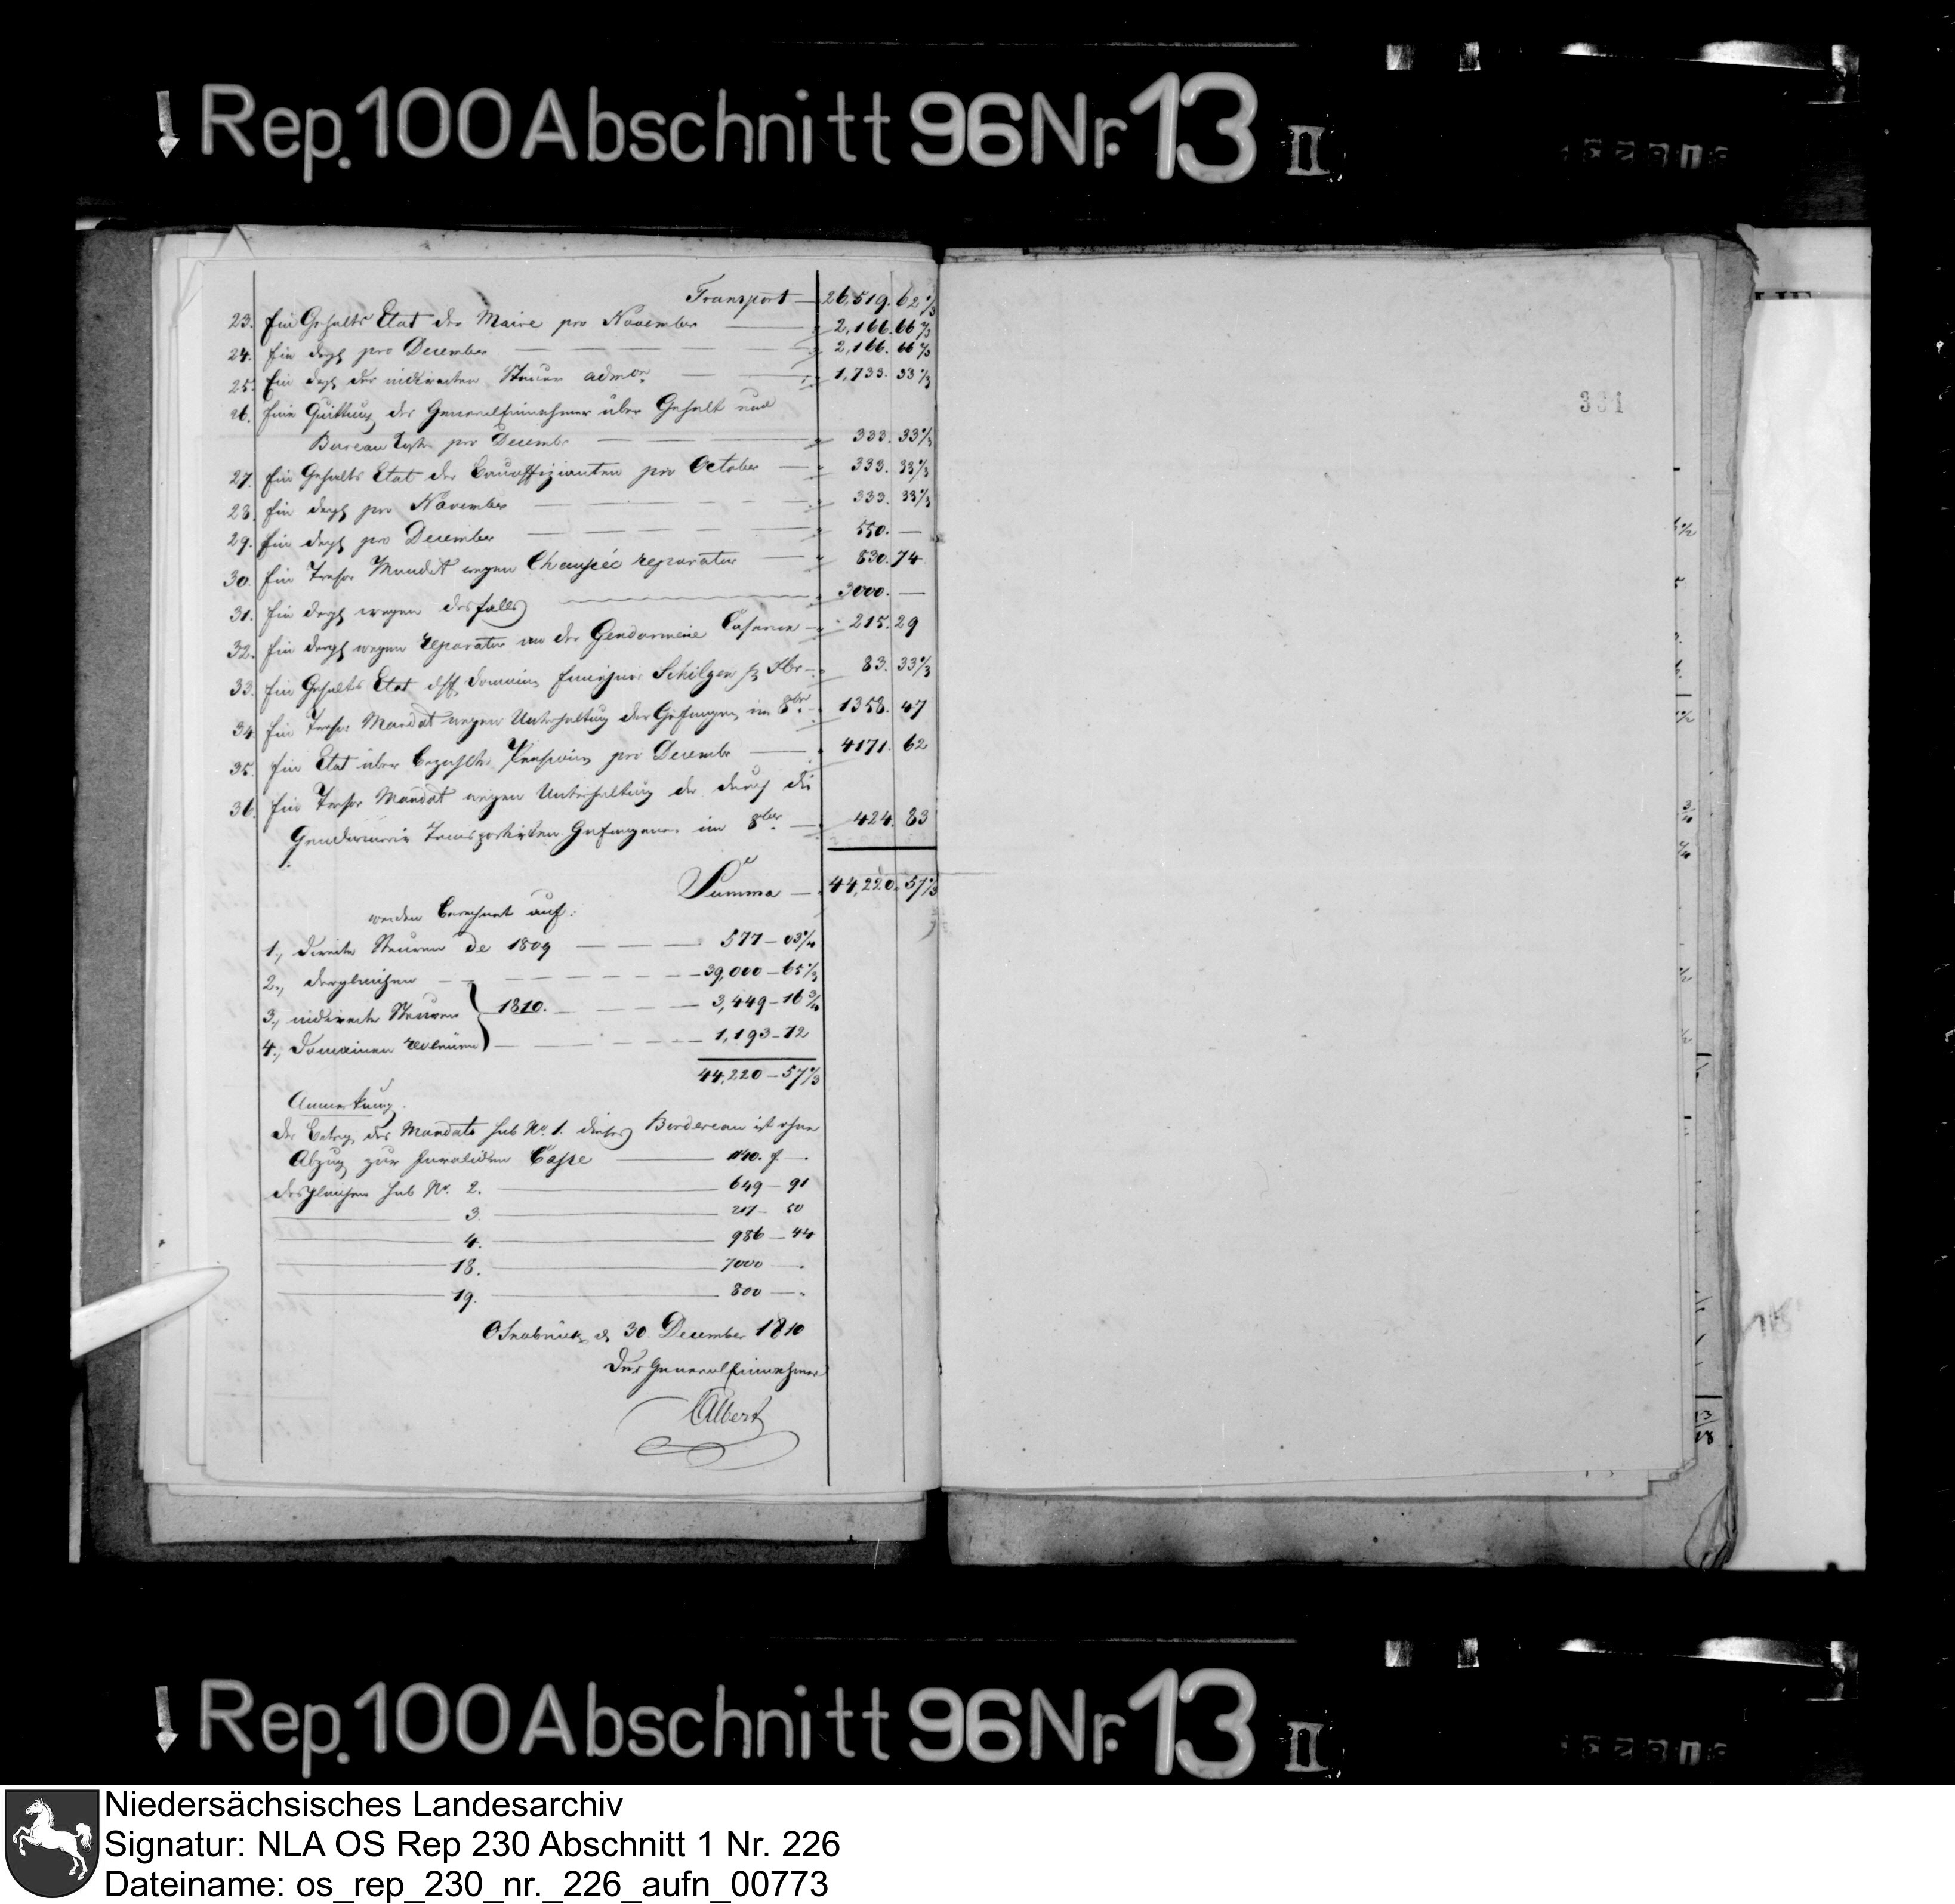 Rep. 100 Abschnitt 96 Nr. 13 II
Transport — 26,519. 62 2/3
23. Ein Gehalts Etat der Maire pro November — 2,166. 66 2/3
24. Ein dergl pro December — 2,166. 66 2/3
25. Ein dergl der indirecten Steuer admon. — 1,733. 33 1/3
26. Eine Quittung des GeneralEinnehmer über Gehalt und
Bureau Kosten pro Decembr — 333. 33 1/3
27. Ein Gehalts Etat der Bauoffizianten pro October — 333. 33 1/3
28. Ein dergl pro November — 333. 33 1/3
29. Ein dergl pro December — 550. —
30. Ein Tresor Mandat wegen Chaussée reparatur — 830. 74
31. Ein dergl wegen desfalls — 3000. —
32. Ein dergl wegen reparatur an der Gendarmerie Caserne — 215. 29
33. Ein Gehalts Etat des Domainen Schilgen Xbr — 83. 33 1/3
34. Ein Tresor Mandat wegen Unterhaltung der Gefangen im 8br. — 1358. 47
35. Ein Etat über bezahlte Pensionen pro Decembr — 4171. 62
36. Ein Tresor Mandat wegen Unterhaltung der durch die
Gendarmerie Transportirten Gefangenen im 8ber — 424. 83
Summa — 44,220. 57 2/3
werden berechnet auf:
1., directe Steuern de 1809 — 577 – 03
2., dergleichen — 39,000 – 65
3., indirecte Steuern } 1810. — 3,449 – 16
4., Domainen revenüen — 1,193 – 72
44,220 – 57 2/3
Anmerkung.
der Betrag des Mandats sub No. 1. dieses Bordereau ist ohne
Abzug zur Invaliden Casse — 1140. f —.
desgleichen sub Nr. 2. — 649 – 91
3. — 217 – 50
4. — 986 – 44
18. — 7000 —.
19. — 800 —.
Osnabrück d 30. December 1810
Der General Einnehmer
Albert
331
Rep. 100 Abschnitt 96 Nr. 13 II
Niedersächsisches Landesarchiv
Signatur: NLA OS Rep 230 Abschnitt 1 Nr. 226
Dateiname: os_rep_230_nr._226_aufn_00773